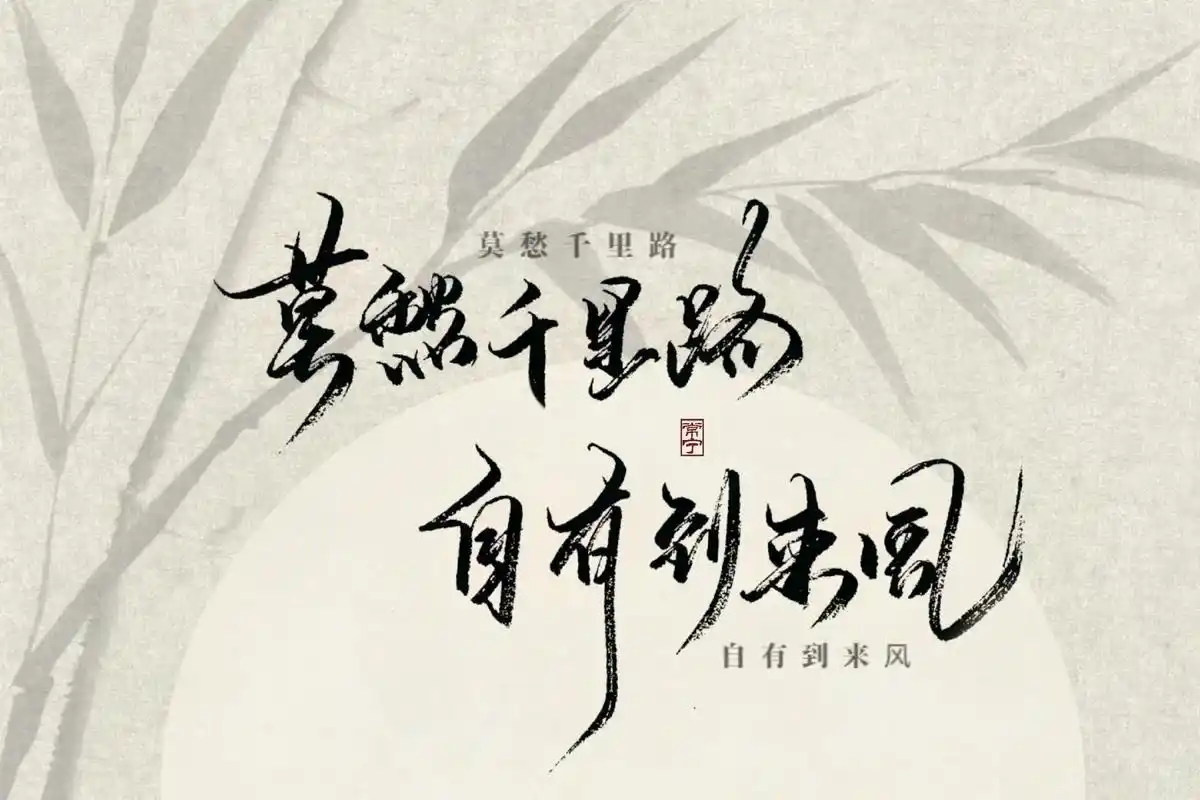 莫愁千里路
莫愁千里路
常宁
自有到来风
自有到来风